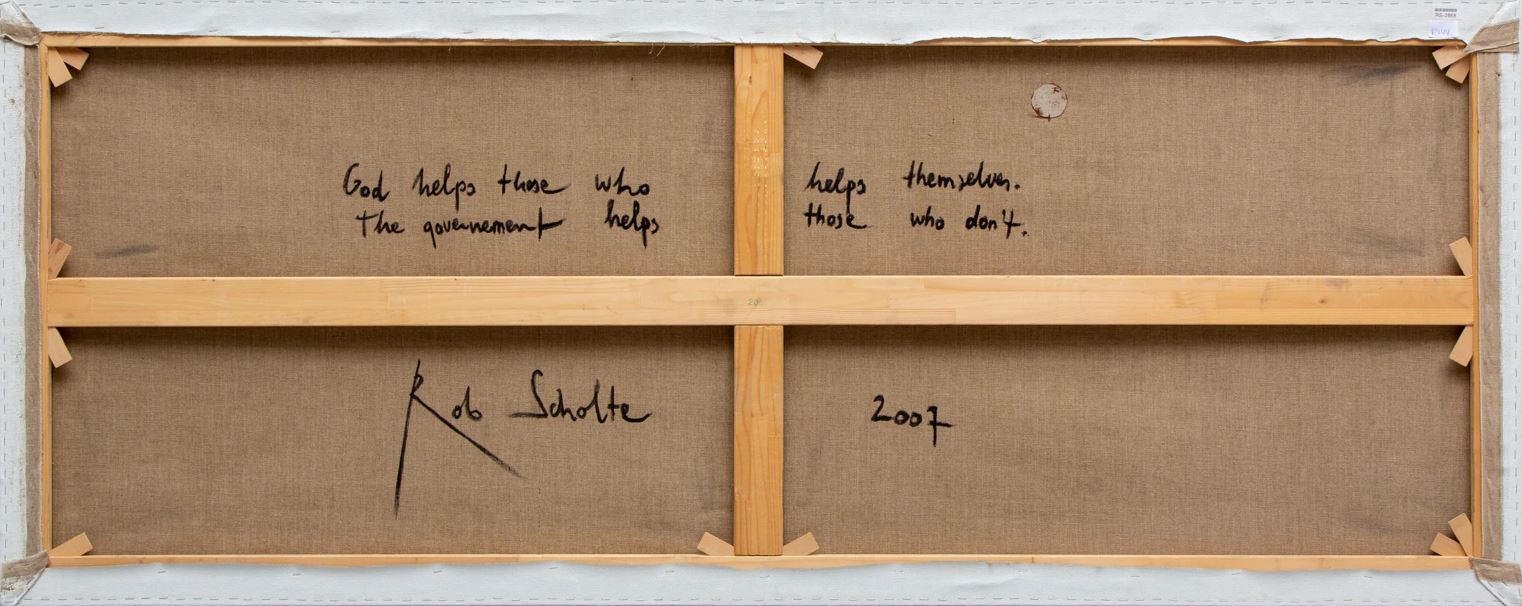 God helps those who helps themselves.
The governement helps those who don't.
Rob Scholte 2007